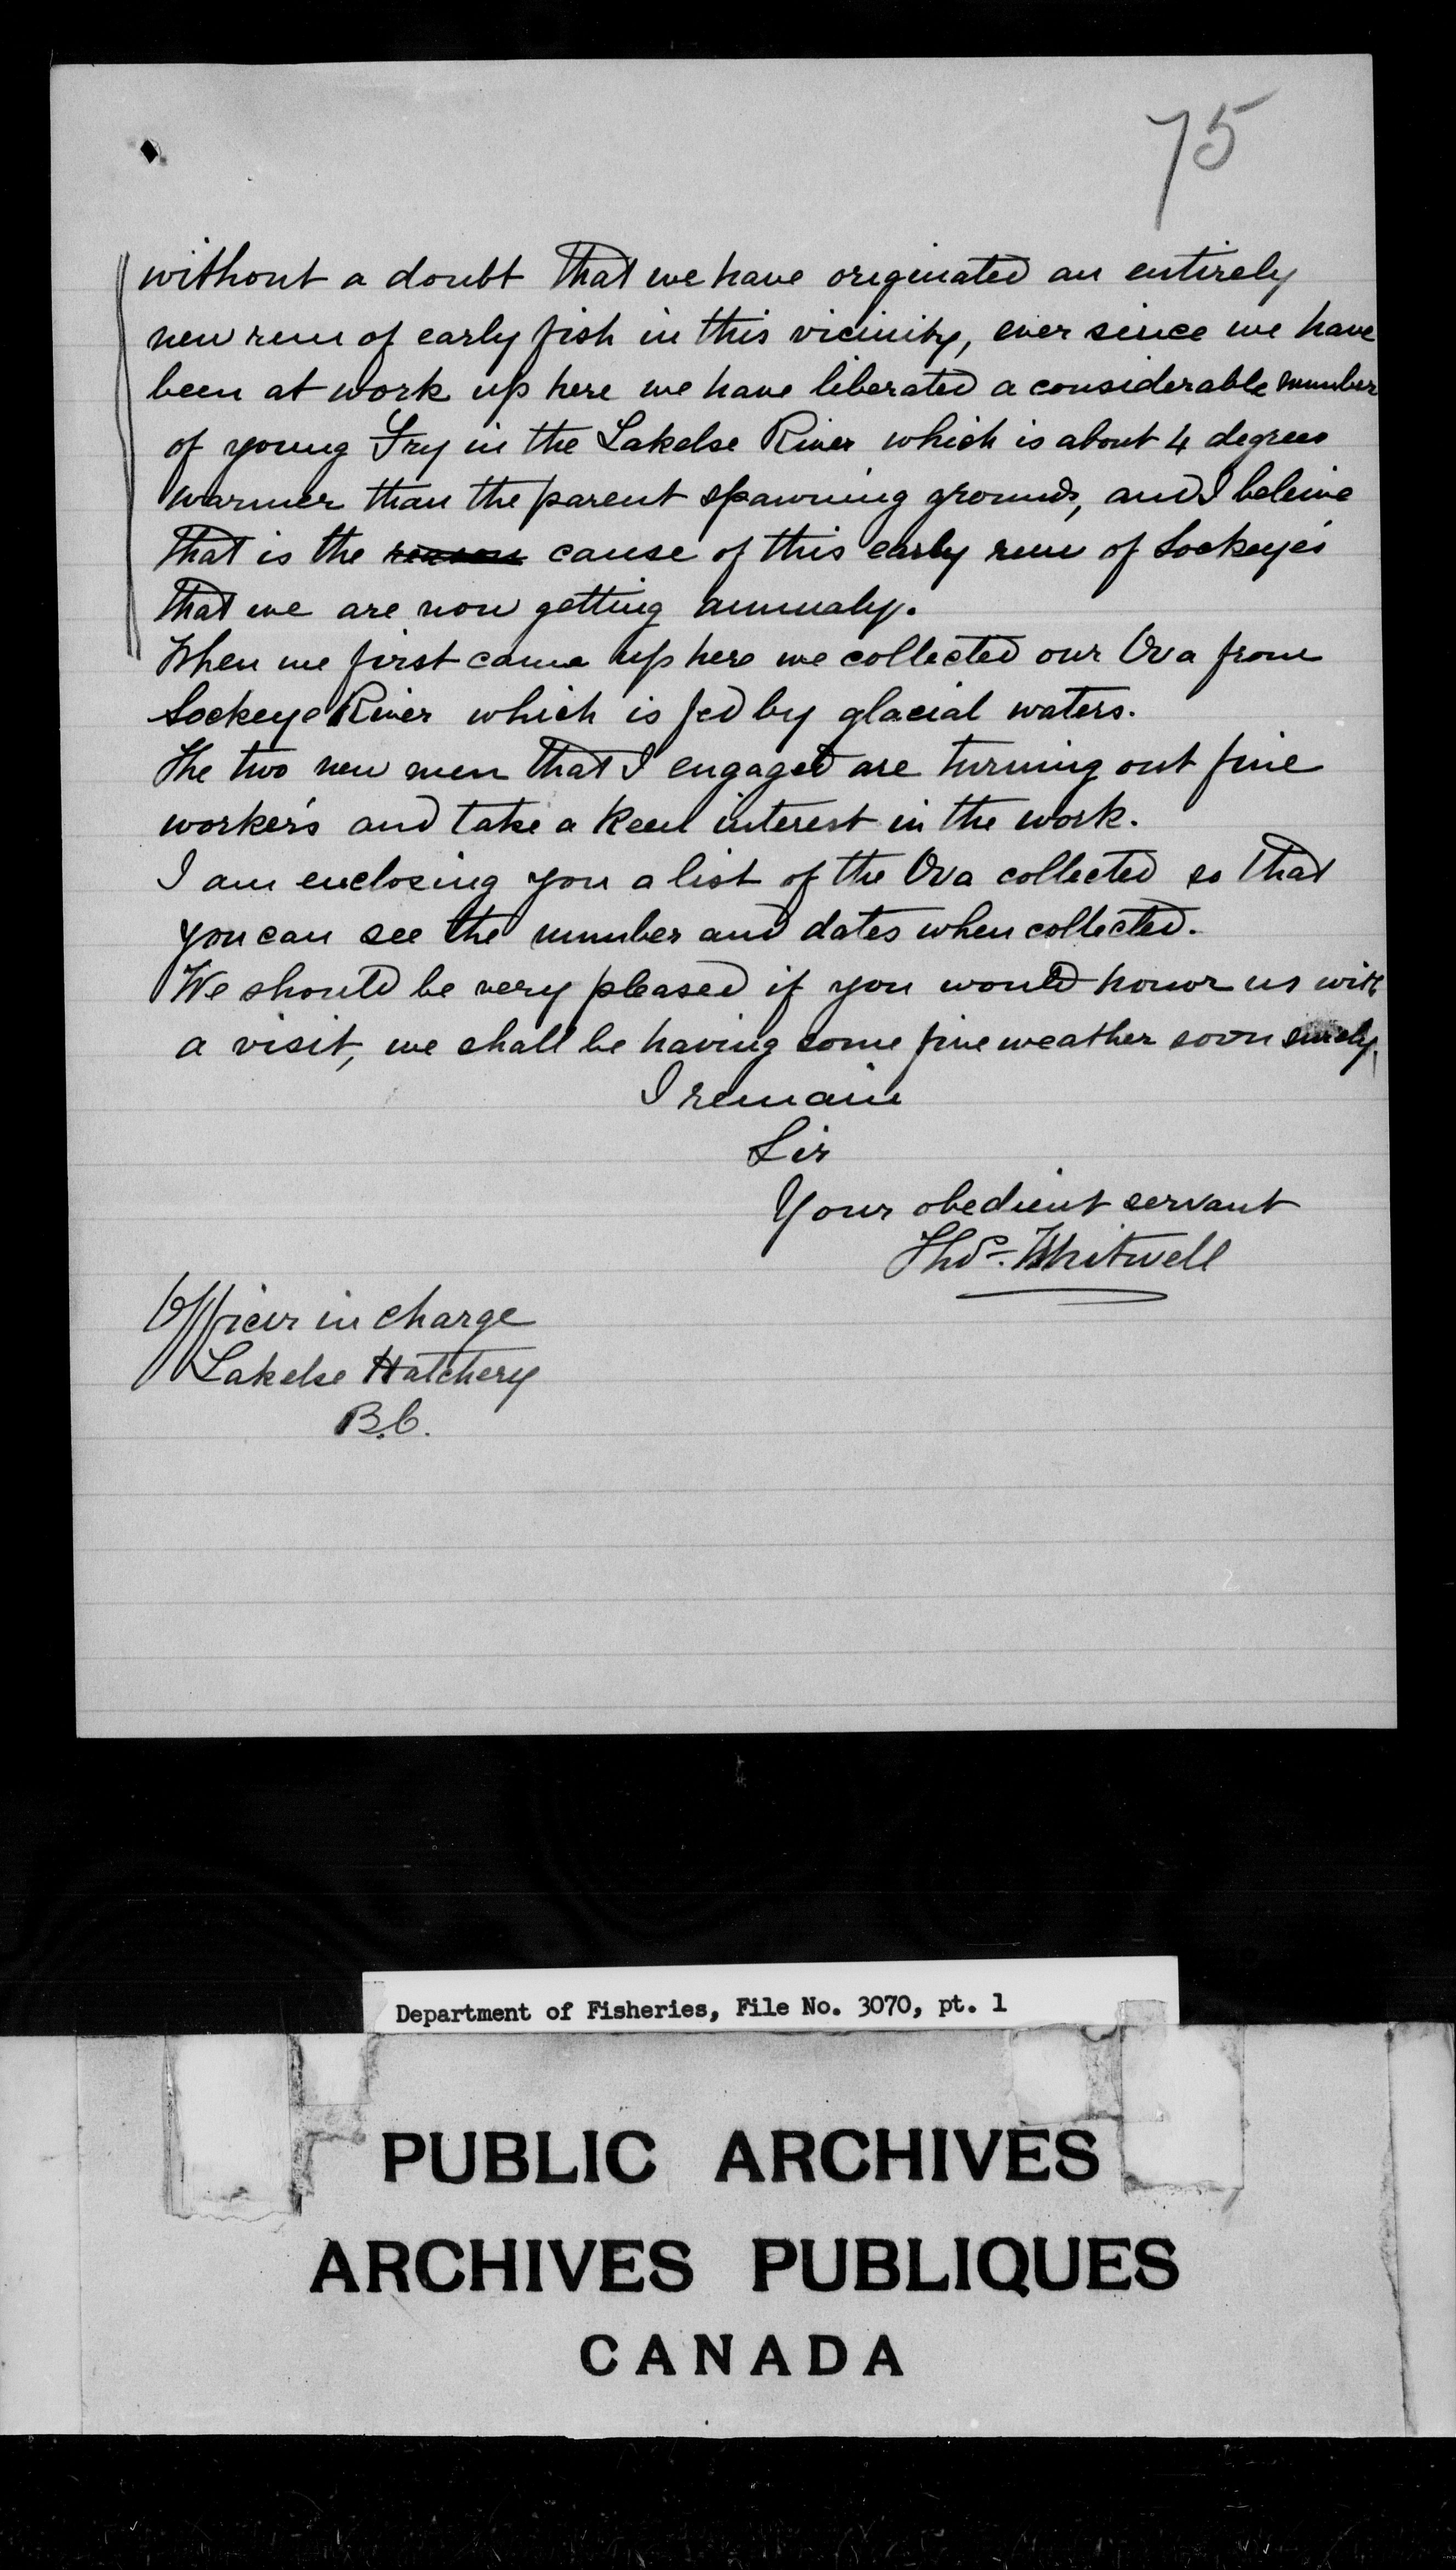 75
without a doubt that we have originated an entirely
new run of early fish in this vicinity, ever since we have
been at work up here we have liberated a considerable number
of young Fry in the Lakelse River which is about 4 degrees
warmer than the parent spawning grounds, and I beleive
that is the reason cause of this early run of Sockeye's
that we are now getting annualy.
When we first came up here we collected our Ova from
Sockeye River which is fed by glacial waters.
The two new men that I engaged are turning out fine
worker's and take a keen interest in the work.
I am enclosing you a list of the Ova collected so that
you can see the number and dates when collected.
We should be very pleased if you would honor us with
a visit, we shall be having some fine weather soon surely.
I remain
Sir
Your obedient servant
Thos. Whitwell
Officer in charge
Lakelse Hatchery
B.C.
Department of Fisheries, File No. 3070, pt. 1
PUBLIC ARCHIVES
ARCHIVES PUBLIQUES
CANADA